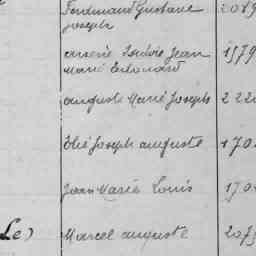 Ferdinand Gustave
Joseph
Arsène Isidore Jean 1579
Marie Edouard
Auguste Marie Joseph 222
Elie Joseph Auguste 170
Jean Marie Louis 170
Le) Marcel Auguste 2075